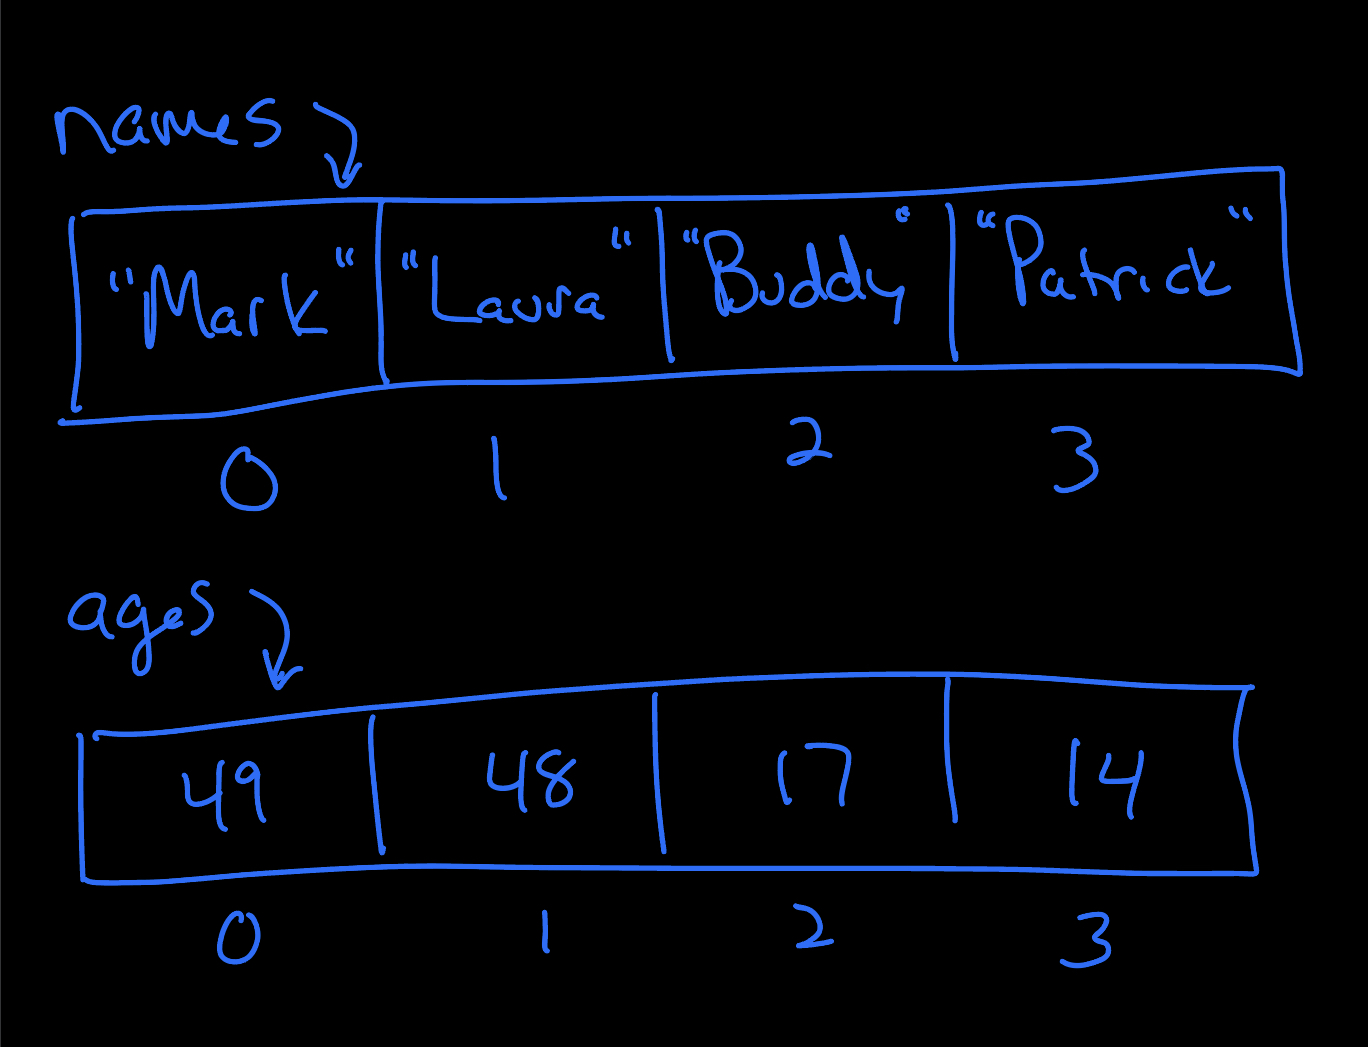 names
"Mark" "Laura" "Buddy" "Patrick"
0 1 2 3
ages
49 48 17 14
0 1 2 3